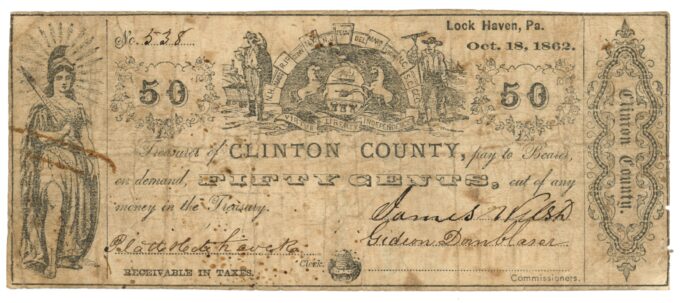 Lock Haven, Pa.
Oct. 18, 1862.
No. 538
VIRTUE LIBERTY INDEPENDENCE
50
50
Treasurer of CLINTON COUNTY, pay to Bearer,
on demand, FIFTY CENTS, out of any
money in the Treasury.
James Welsh
Gideon Dornblaser
Clerk.
RECEIVABLE IN TAXES.
Commissioners.
Clinton County.